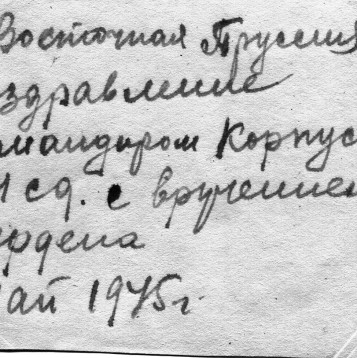 Восточная Пруссия
здравление
мандиром Корпус
1 сд. с вручением
рдена
ай 1945г.